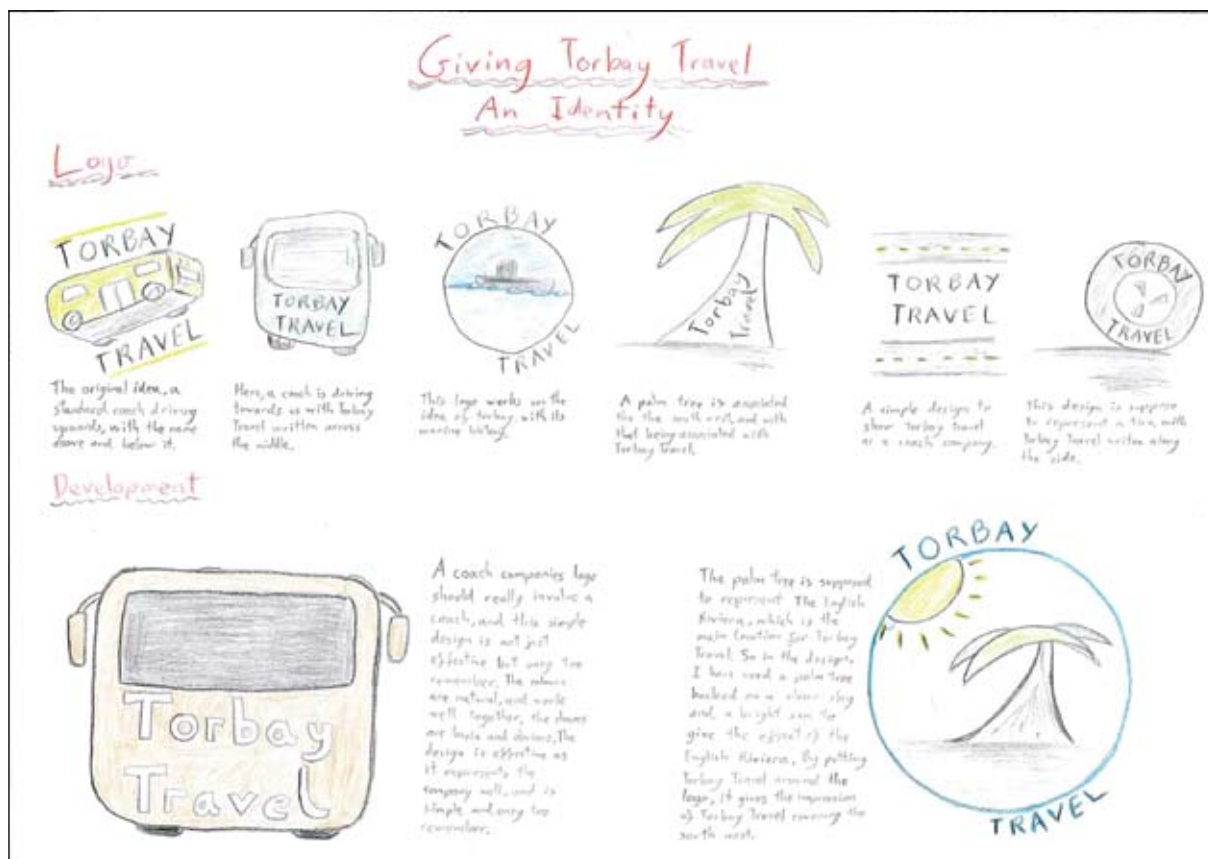 Giving Torbay Travel
An Identity
Logo
TORBAY
TRAVEL
The original idea, a
standard coach driving
upwards, with the name
above and below it.
TORBAY
TRAVEL
Here, a coach is driving
towards us with Torbay
Travel written across
the middle.
TORBAY
TRAVEL
This logo works on the
idea of torbay, with its
marine history.
Torbay
Travel
A palm tree is associated
the the south west, and with
that being associated with
Torbay Travel.
TORBAY
TRAVEL
A simple design to
show Torbay Travel
as a coach company.
TORBAY
TRAVEL
This design is suppose
to represent a tire, with
Torbay Travel written along
the side.
Development
Torbay
Travel
A coach companies logo
should really involve a
coach, and this simple
design is not just
effective but easy too
remember. The colours
are natural, and work
well together, the shapes
are basic and obvious. The
design is effective as
it represents the
company well, and is
simple and easy too
remember.
The palm tree is supposed
to represent The English
Riviera, which is the
main location for Torbay
Travel. So in the design,
I have used a palm tree
backed on a clear sky
and, a bright sun to
give the effect of the
English Riviera. By putting
Torbay Travel around the
logo, it gives the impression
of Torbay Travel covering the
south west.
TORBAY
TRAVEL